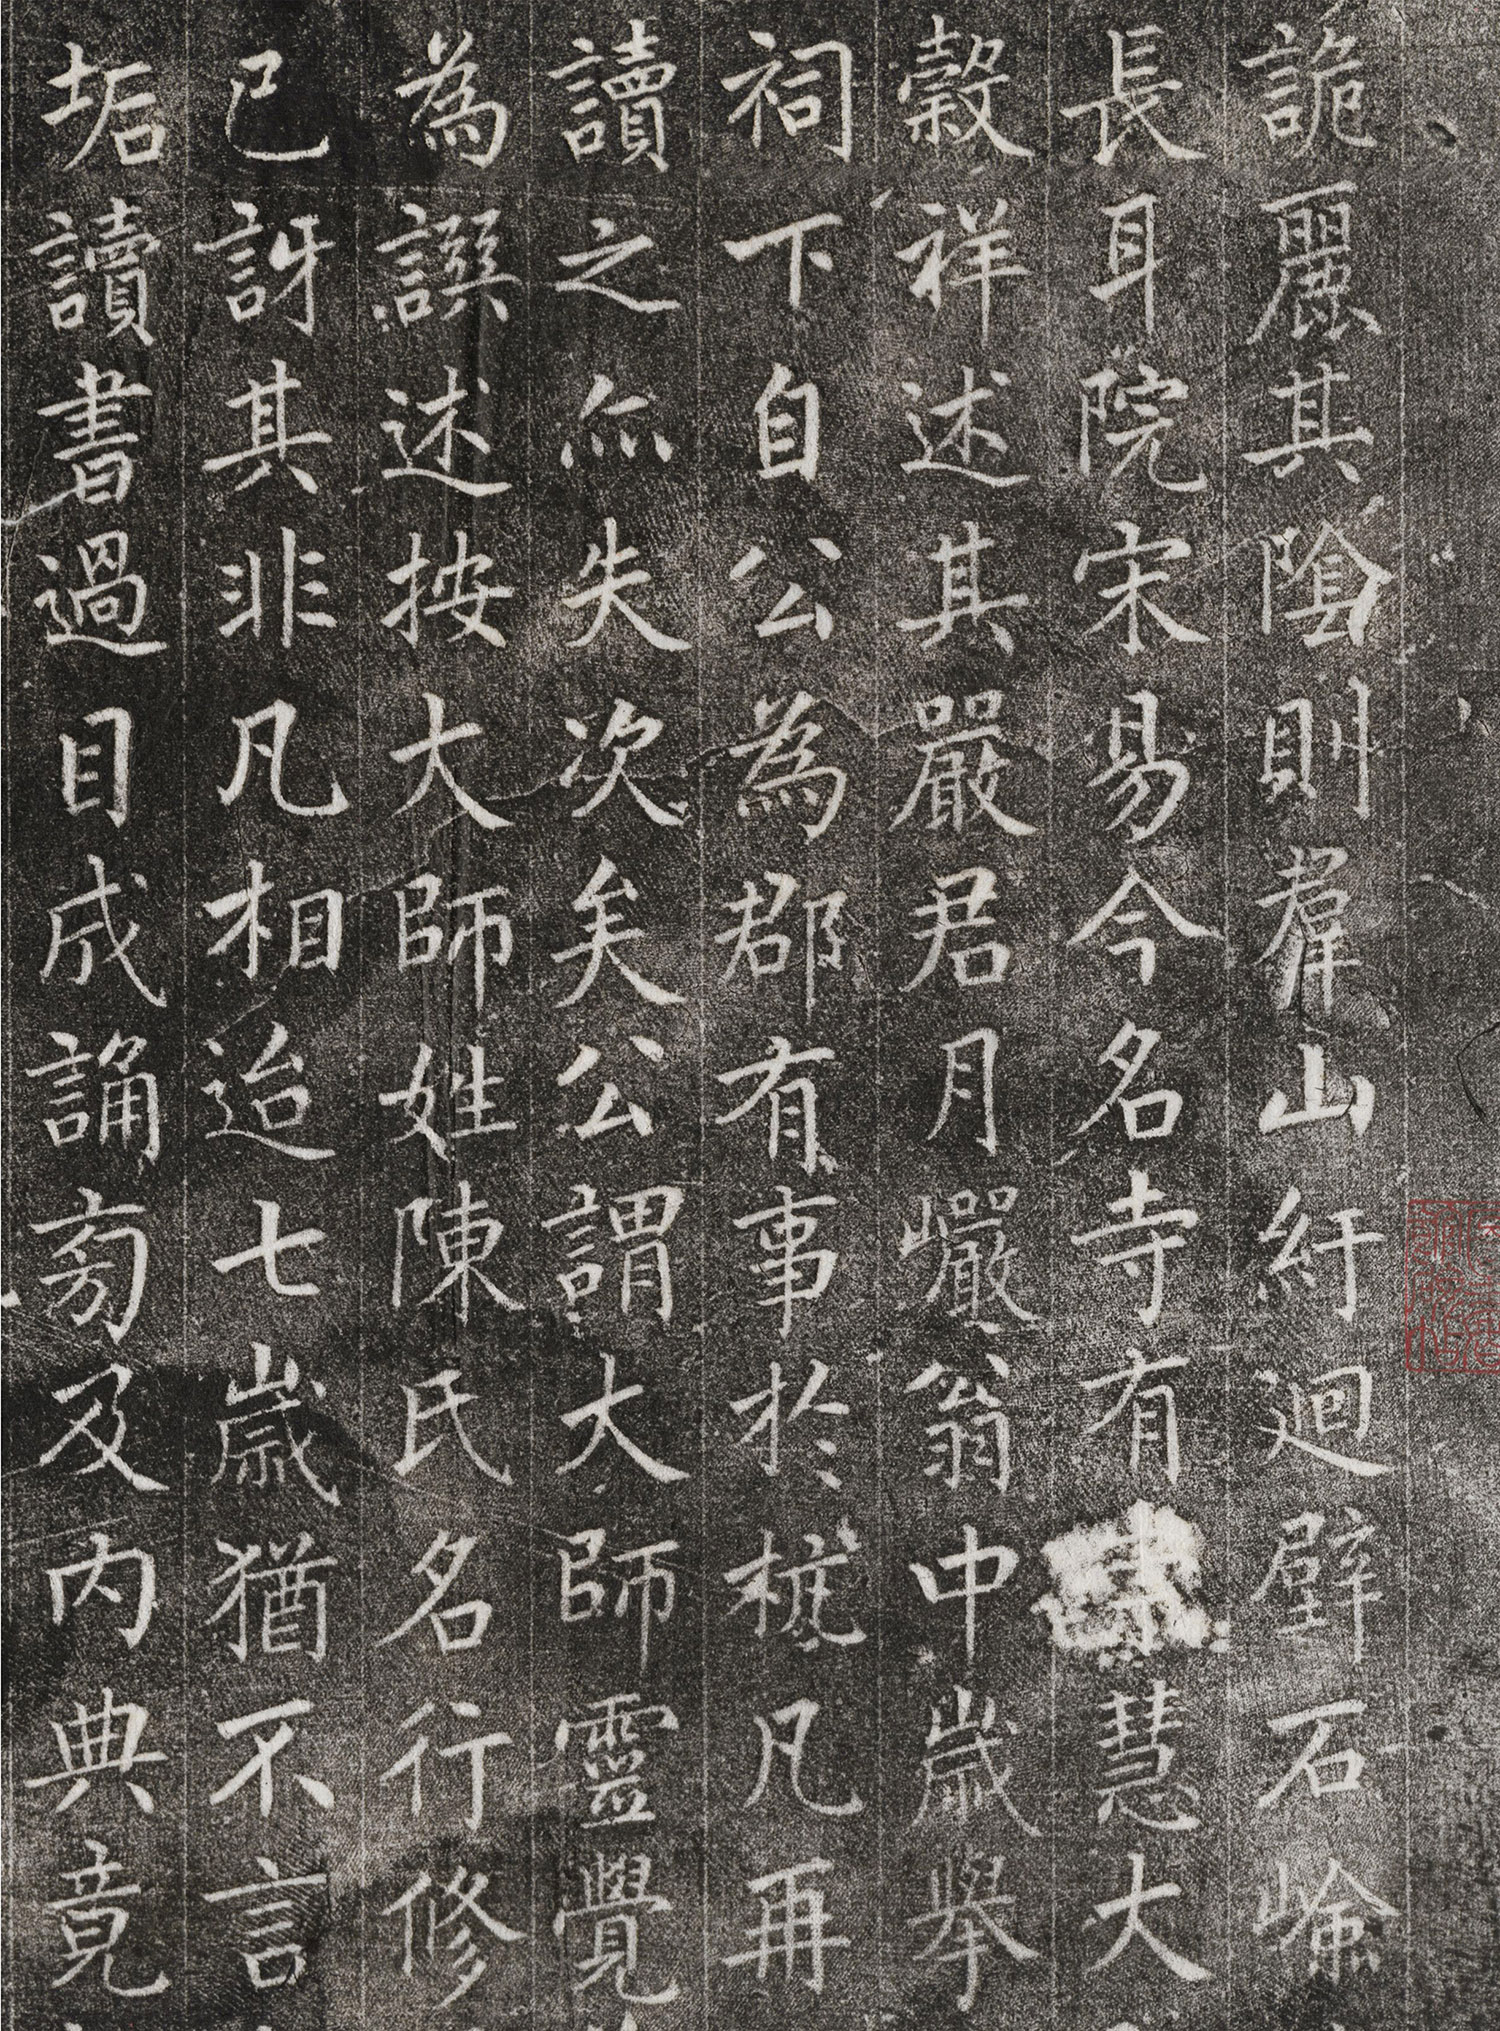 詭麗其陰則羣山紆迴壁石崳
長耳院宋易今名寺有崇慧大
穀祥述其嚴君月巖翁中歲舉
祠下自公為郡有事於桄凡再
讀之亦失次矣公謂大師靈覺
為譔述按大師姓陳氏名行修
已訝其非凡相迨七歲猶不言
垢讀書過目成誦旁及內典竟